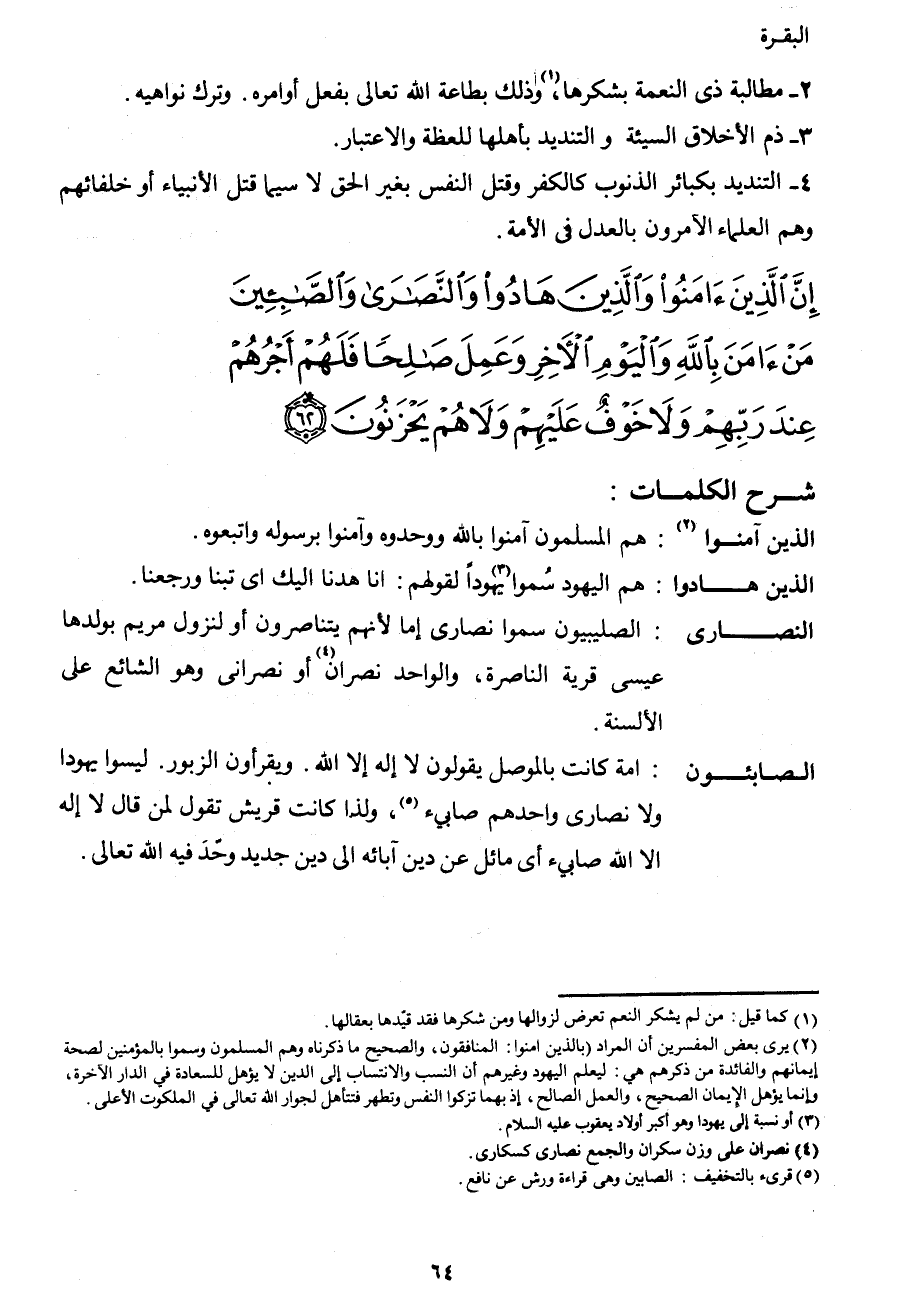 البقـرة
٢ـ مطالبة ذى النعمة بشكرها،(١) وذلك بطاعة الله تعالى بفعل أوامره. وترك نواهيه.
٣ـ ذم الأخلاق السيئة و التنديد بأهلها للعظة والاعتبار.
٤ـ التنديد بكبائر الذنوب كالكفر وقتل النفس بغير الحق لا سيما قتل الأنبياء أو خلفائهم
وهم العلماء الآمرون بالعدل فى الأمة.
إِنَّ ٱلَّذِينَ ءَامَنُوا۟ وَٱلَّذِينَ هَادُوا۟ وَٱلنَّصَـٰرَىٰ وَٱلصَّـٰبِـِٔينَ
مَنْ ءَامَنَ بِٱللَّهِ وَٱلْيَوْمِ ٱلْـَٔاخِرِ وَعَمِلَ صَـٰلِحًا فَلَهُمْ أَجْرُهُمْ
عِندَ رَبِّهِمْ وَلَا خَوْفٌ عَلَيْهِمْ وَلَا هُمْ يَحْزَنُونَ ٦٢
شـــرح الكلمـــات :
الذين آمنـــوا (٢) : هم المسلمون آمنوا بالله ووحدوه وآمنوا برسوله واتبعوه.
الذين هـــــادوا : هم اليهود سُموا(٣) يهوداً لقولهم: انا هدنا اليك اى تبنا ورجعنا.
النصــــــارى : الصليبيون سموا نصارى إما لأنهم يتناصرون أو لنزول مريم بولدها
عيسى قرية الناصرة، والواحد نصران(٤) أو نصرانى وهو الشائع على
الألسنة.
الـصـابئـــون : امة كانت بالموصل يقولون لا إله إلا الله. ويقرأون الزبور. ليسوا يهودا
ولا نصارى واحدهم صابيء (٥)، ولذا كانت قريش تقول لمن قال لا إله
الا الله صابيء أى مائل عن دين آبائه الى دين جديد وحّدَ فيه الله تعالى.
(١) كما قيل: من لم يشكر النعم تعرض لزوالها ومن شكرها فقد قيّدها بعقالها.
(٢) يرى بعض المفسرين أن المراد (بالذين امنوا: المنافقون، والصحيح ما ذكرناه وهم المسلمون وسموا بالمؤمنين لصحة
إيمانهم والفائدة من ذكرهم هي: ليعلم اليهود وغيرهم أن النسب والانتساب إلى الدين لا يؤهل للسعادة في الدار الآخرة،
وإنما يؤهل الإيمان الصحيح، والعمل الصالح، إذ بهما تزكوا النفس وتطهر فتتأهل لجوار الله تعالى في الملكوت الأعلى.
(٣) أو نسبة إلى يهودا وهو أكبر أولاد يعقوب عليه السلام.
(٤) نصران على وزن سكران والجمع نصارى كسكارى.
(٥) قرىء بالتخفيف : الصابين وهى قراءة ورش عن نافع.
٦٤